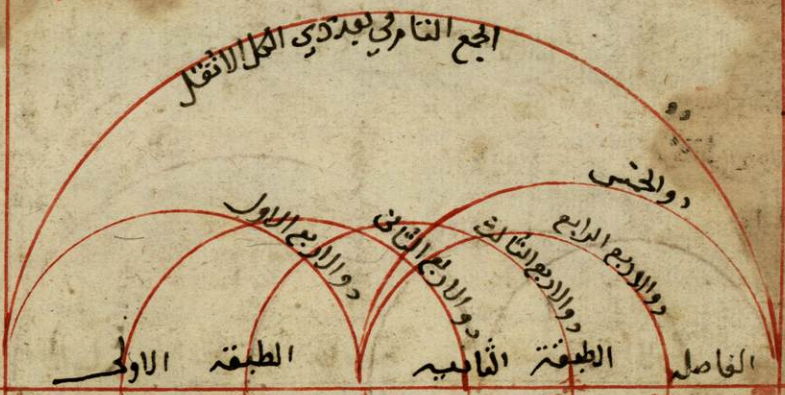 الجمع التام في بعد ذي الكل الاثقل
ذو الخمس
ذو الاربع الاول
ذو الاربع الثانى
ذو الاربع الثالث
ذو الاربع الرابع
الفاصله
الطبقة الثانيه
الطبقه الاولى